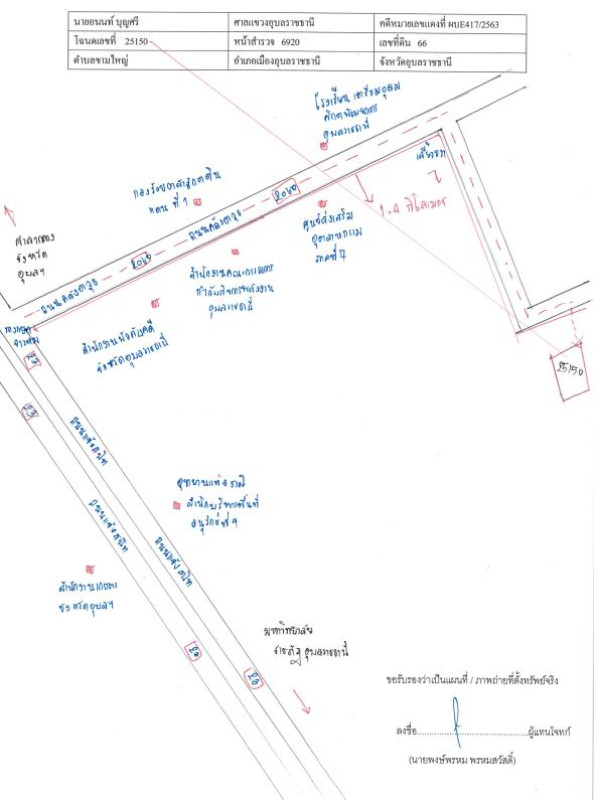 นายอนนท์ บุญศรี ศาลแขวงอุบลราชธานี คดีหมายเลขแดงที่ ผบE417/2563
โฉนดเลขที่ 25150 หน้าสำรวจ 6920 เลขที่ดิน 66
ตำบลขามใหญ่ อำเภอเมืองอุบลราชธานี จังหวัดอุบลราชธานี
โรงเรียนเตรียมอุดม
ศึกษาพัฒนาการ
อุบลราชธานี
เลี้ยวขวา
ถนนคลังอาวุธ
1.4 กิโลเมตร
ศูนย์ส่งเสริม
อุตสาหกรรม
ภาคที่ 7
ศาลากลาง
จังหวัด
อุบลฯ
สำนักงานคณะกรรมการ
กำกับกิจการพลังงาน
อุบลราชธานี
ถนนคลังอาวุธ
สำนักงานบังคับคดี
จังหวัดอุบลราชธานี
25150
ถนนแจ้งสนิท
ถนนแจ้งสนิท
ถนนแจ้งสนิท
สำนักบริหารพื้นที่
อนุรักษ์ที่ 9
สำนักงานเกษตร
จังหวัดอุบลฯ
มหาวิทยาลัย
ราชภัฏอุบลราชธานี
ขอรับรองว่าเป็นแผนที่ / ภาพถ่ายที่ตั้งทรัพย์จริง
ลงชื่อ................................ผู้แทนโจทก์
(นายพงษ์พรหม พรหมสวัสดิ์)